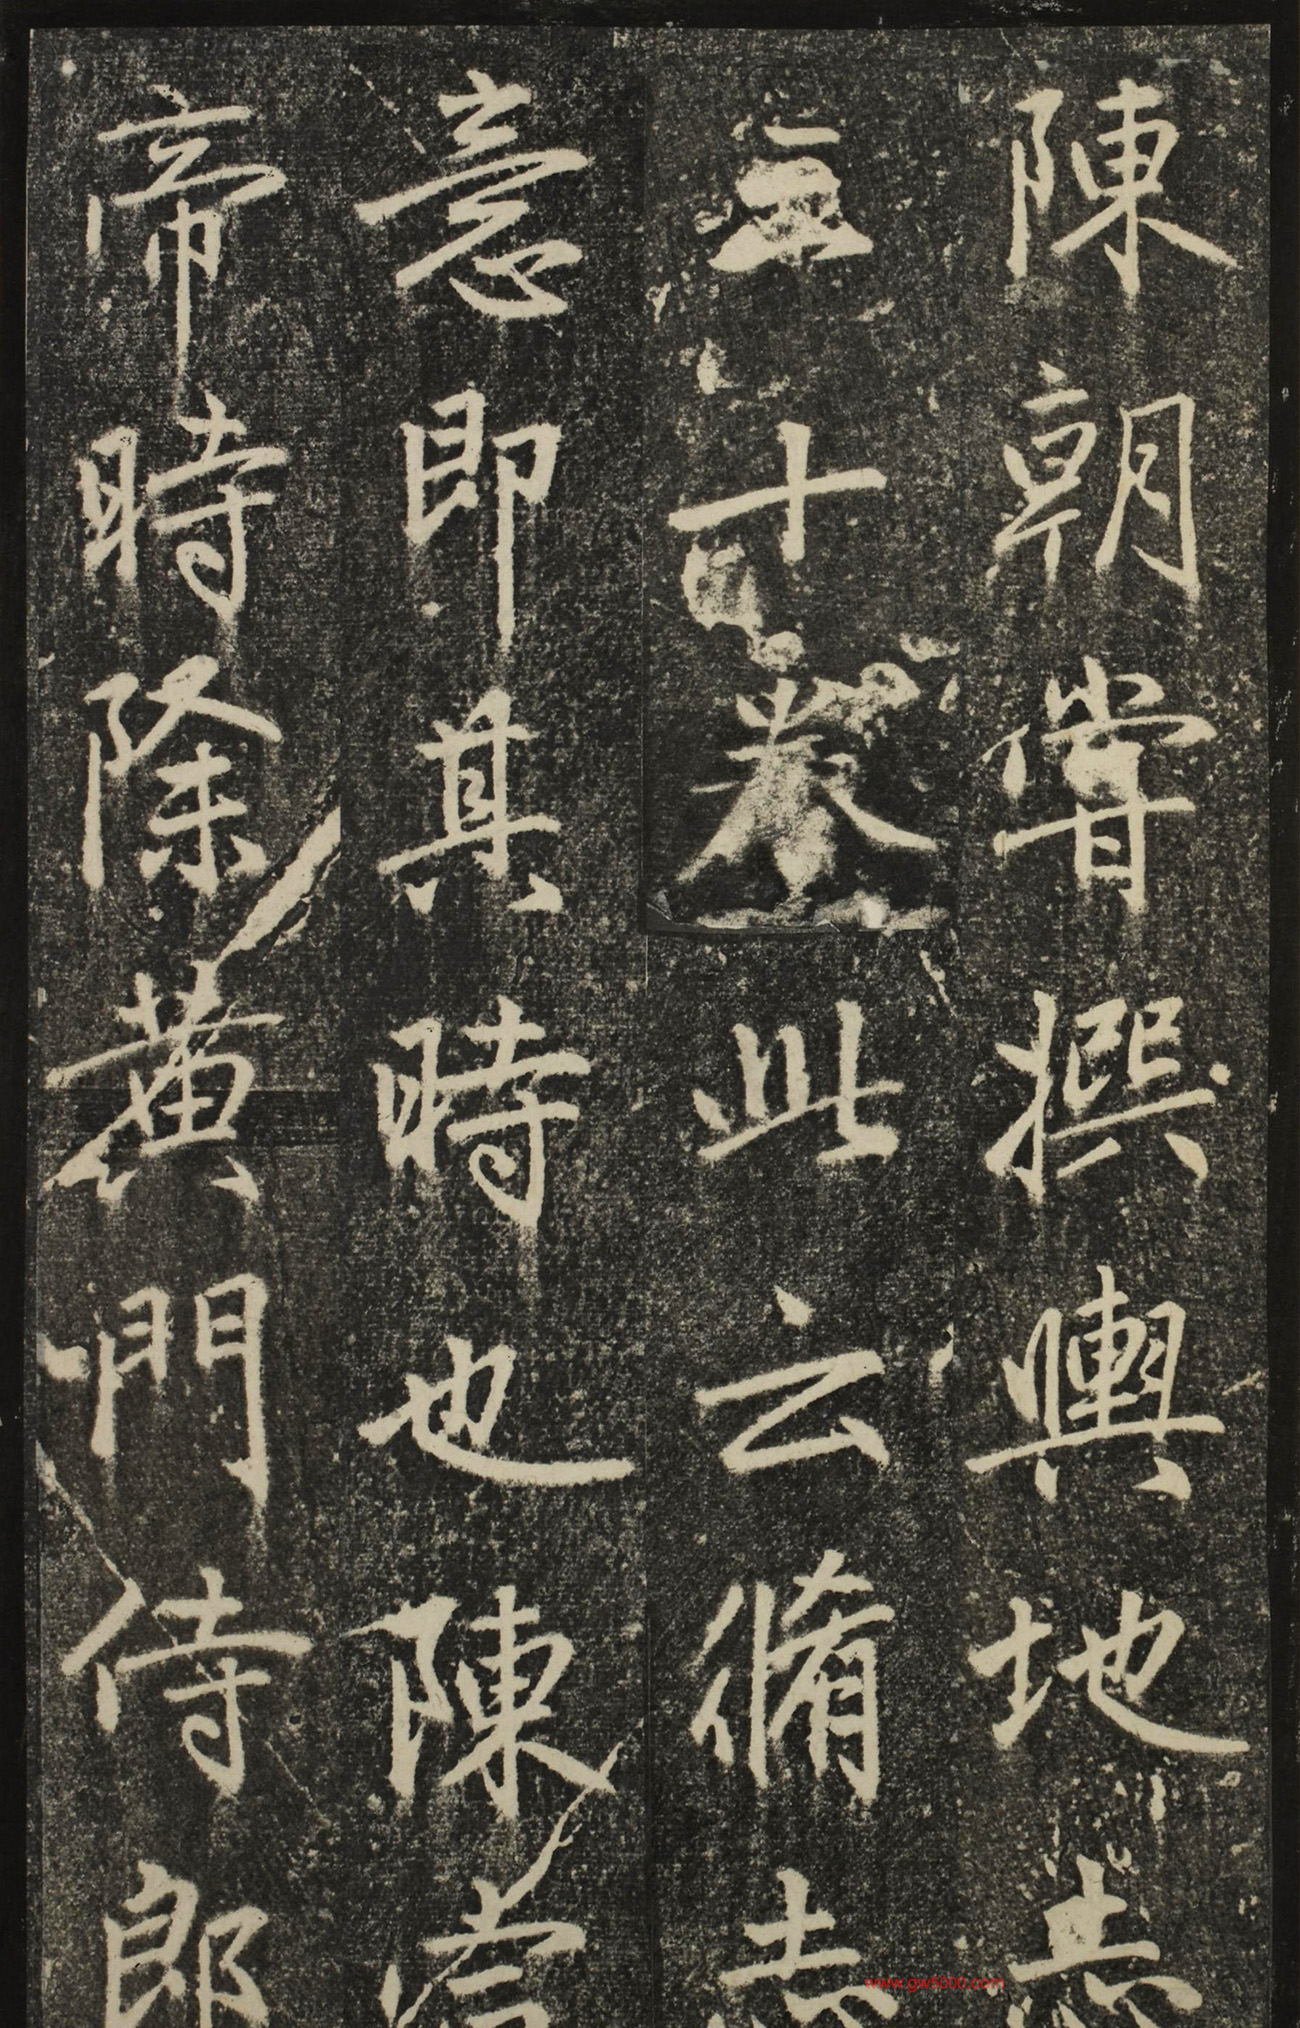 陳朝嘗撰輿地志
三十卷此云脩志
意即其時也陳宣
帝時除黃門侍郎
www.gw5000.com